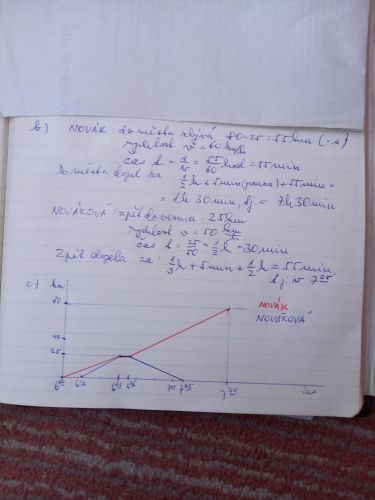 b.) NOVÁK: do města zbývá 80-25=55km (=s)
rychlost v=60 km/h
čas t = s/v = 55/60 hod = 55min
Do města dojel za 1/2h + 5min (pauza) + 55min =
= 1h 30min, tj. v 7h 30min
NOVÁKOVÁ: zpět do vesnice: 25km
rychlost v = 50 km/h
čas t = 25/50 = 1/2h = 30min
Zpět dojela za: 1/3h + 5min + 1/2h = 55min,
tj. v
c.) km
80
NOVÁK
NOVÁKOVÁ
25
6⁰⁰
7³⁰
čas